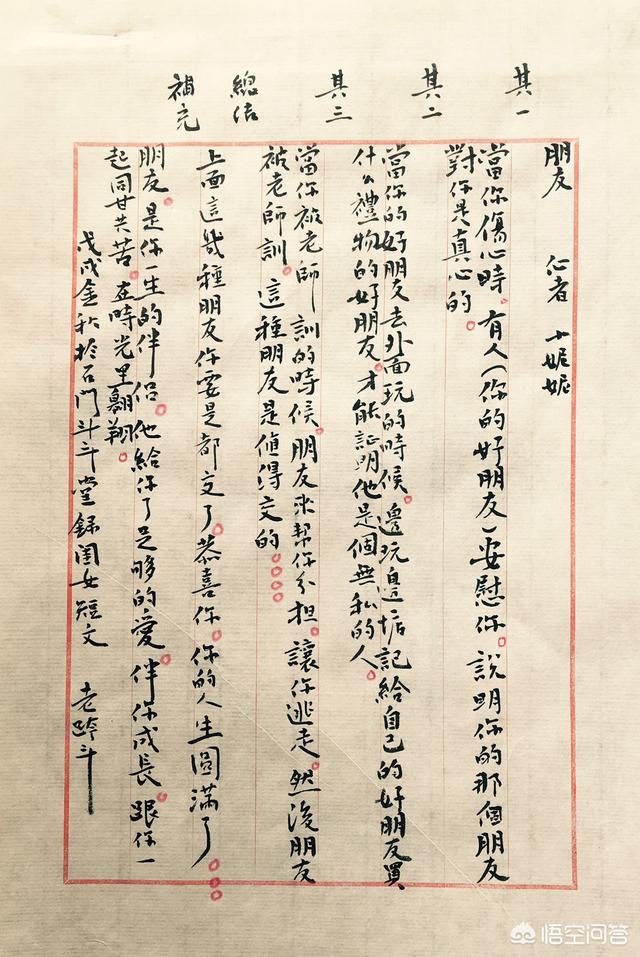 朋友 作者 小妮妮
其一
當你傷心時。有人(你的好朋友)安慰你。說明你的那個朋友
對你是真心的。
其二
當你的好朋友去外面玩的時候。邊玩邊惦記給自己的好朋友買
什么禮物的好朋友。才能証明他是個無私的人。
其三
當你被老師訓的時候。朋友來幫你分担。讓你逃走。然後朋友
被老師訓。這種朋友是值得交的。。。。
總结
上面這幾種朋友你要是都交了。恭喜你。你的人生圓滿了。。。
補充
朋友。是你一生的伴侣。他給你了足够的愛。伴你成長。跟你一
起同甘共苦。在時光里翱翔。
戊戌金秋於石門斗斗堂録闺女短文 老 斗
悟空问答